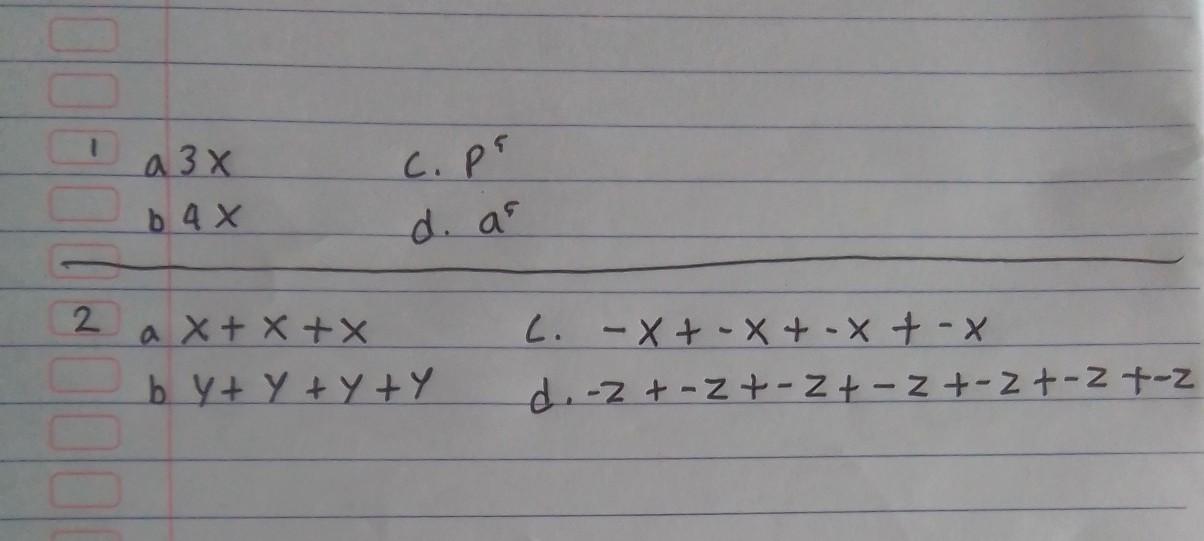 1 a 3x c. p⁵
b 4x d. a⁵
2 a x + x + x c. -x + -x + -x + -x
b y + y + y + y d. -z + -z + -z + -z + -z + -z + -z